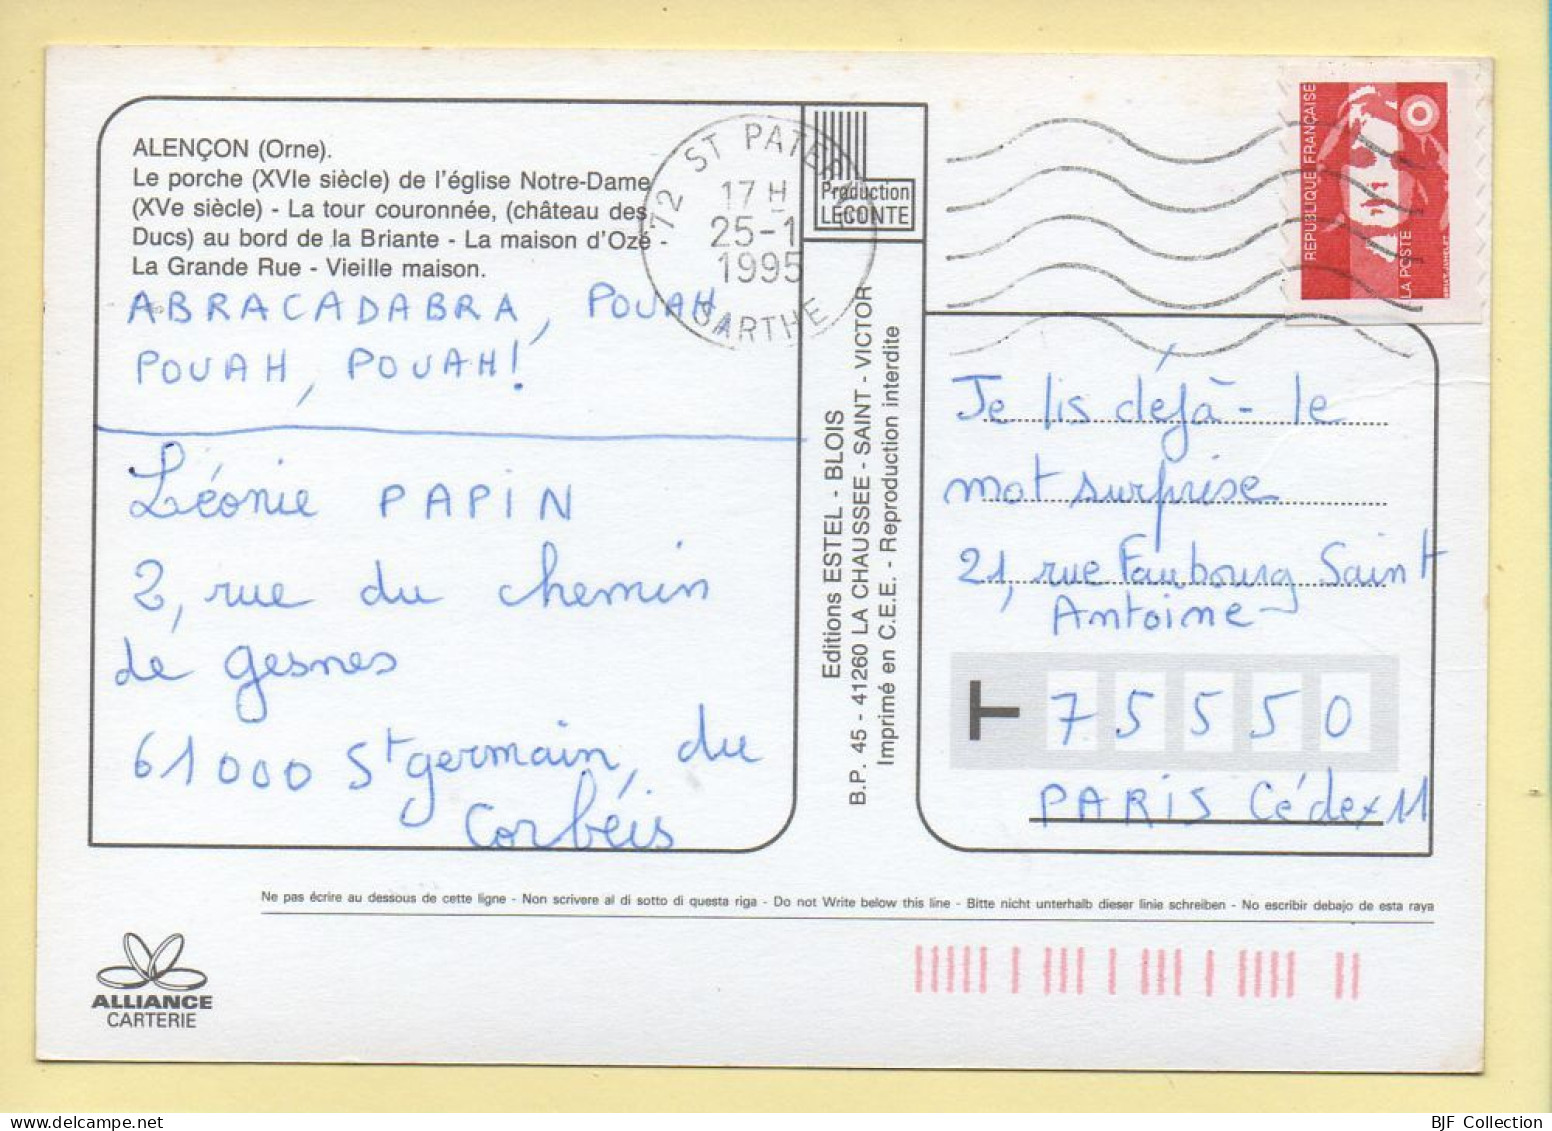 ALENÇON (Orne).
Le porche (XVIe siècle) de l'église Notre-Dame
(XVe siècle) - La tour couronnée, (château des
Ducs) au bord de la Briante - La maison d'Ozé -
La Grande Rue - Vieille maison.
ABRACADABRA, POUAH,
POUAH, POUAH!
Léonie PAPIN
2, rue du chemin
de gesnes
61000 St germain, du
Corbéis
72 ST PATER
17 H
25-1
1995
SARTHE
Production
LECONTE
Editions ESTEL - BLOIS
B.P. 45 - 41260 LA CHAUSSEE - SAINT - VICTOR
Imprimé en C.E.E. - Reproduction interdite
REPUBLIQUE FRANÇAISE
LA POSTE
Je lis déjà - le
mot surprise
21, rue Faubourg Saint
Antoine
T 75550
PARIS Cédex 11
Ne pas écrire au dessous de cette ligne - Non scrivere al di sotto di questa riga - Do not Write below this line - Bitte nicht unterhalb dieser linie schreiben - No escribir debajo de esta raya
ALLIANCE
CARTERIE
BJF Collection